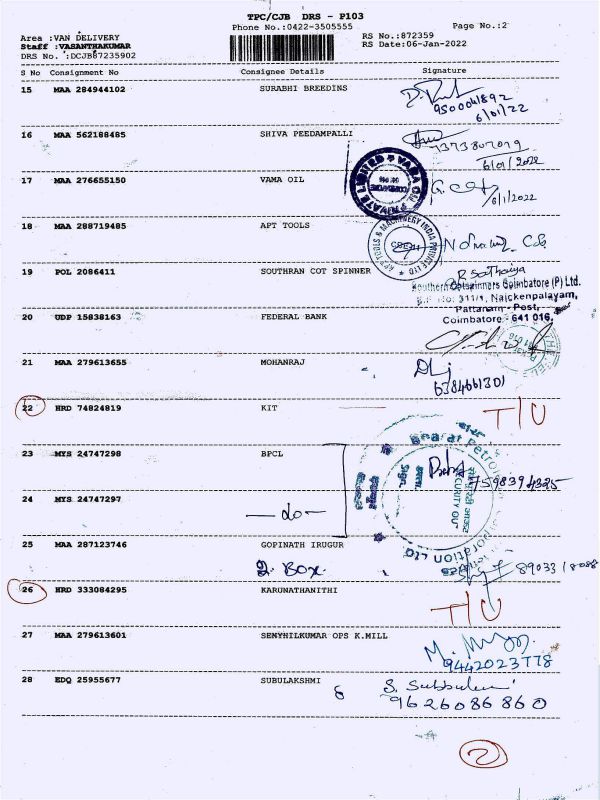 TPC/CJB DRS - P103
Phone No.:0422-3505555 Page No.:2
Area :VAN DELIVERY RS No.:872359
Staff :VASANTHAKUMAR RS Date:06-Jan-2022
DRS No. :DCJB87235902
S No Consignment No Consignee Details Signature
15 MAA 284944102 SURABHI BREEDINS
9500041892
6/01/22
16 MAA 562188485 SHIVA PEEDAMPALLI
7373807079
6/01/2022
17 MAA 276655150 VAMA OIL
6/1/2022
18 MAA 288719485 APT TOOLS
APT TOOLS & MACHINERY INDIA PRIVATE LTD
19 POL 2086411 SOUTHRAN COT SPINNER
Southern Cotspinners Coimbatore (P) Ltd.
S.F. No: 311/1, Naickenpalayam,
Pattanam - Post,
Coimbatore - 641 016.
20 UDP 15838163 FEDERAL BANK
21 MAA 279613655 MOHANRAJ
6384661301
22 HRD 74824819 KIT T/U
23 MYS 24747298 BPCL
7598394325
24 MYS 24747297
- do -
25 MAA 287123746 GOPINATH IRUGUR
2. Box.
26 HRD 333084295 KARUNATHANITHI T/U
27 MAA 279613601 SENYHILKUMAR OPS K.MILL
9442023778
28 EDQ 25955677 SUBULAKSHMI
9626086860
2